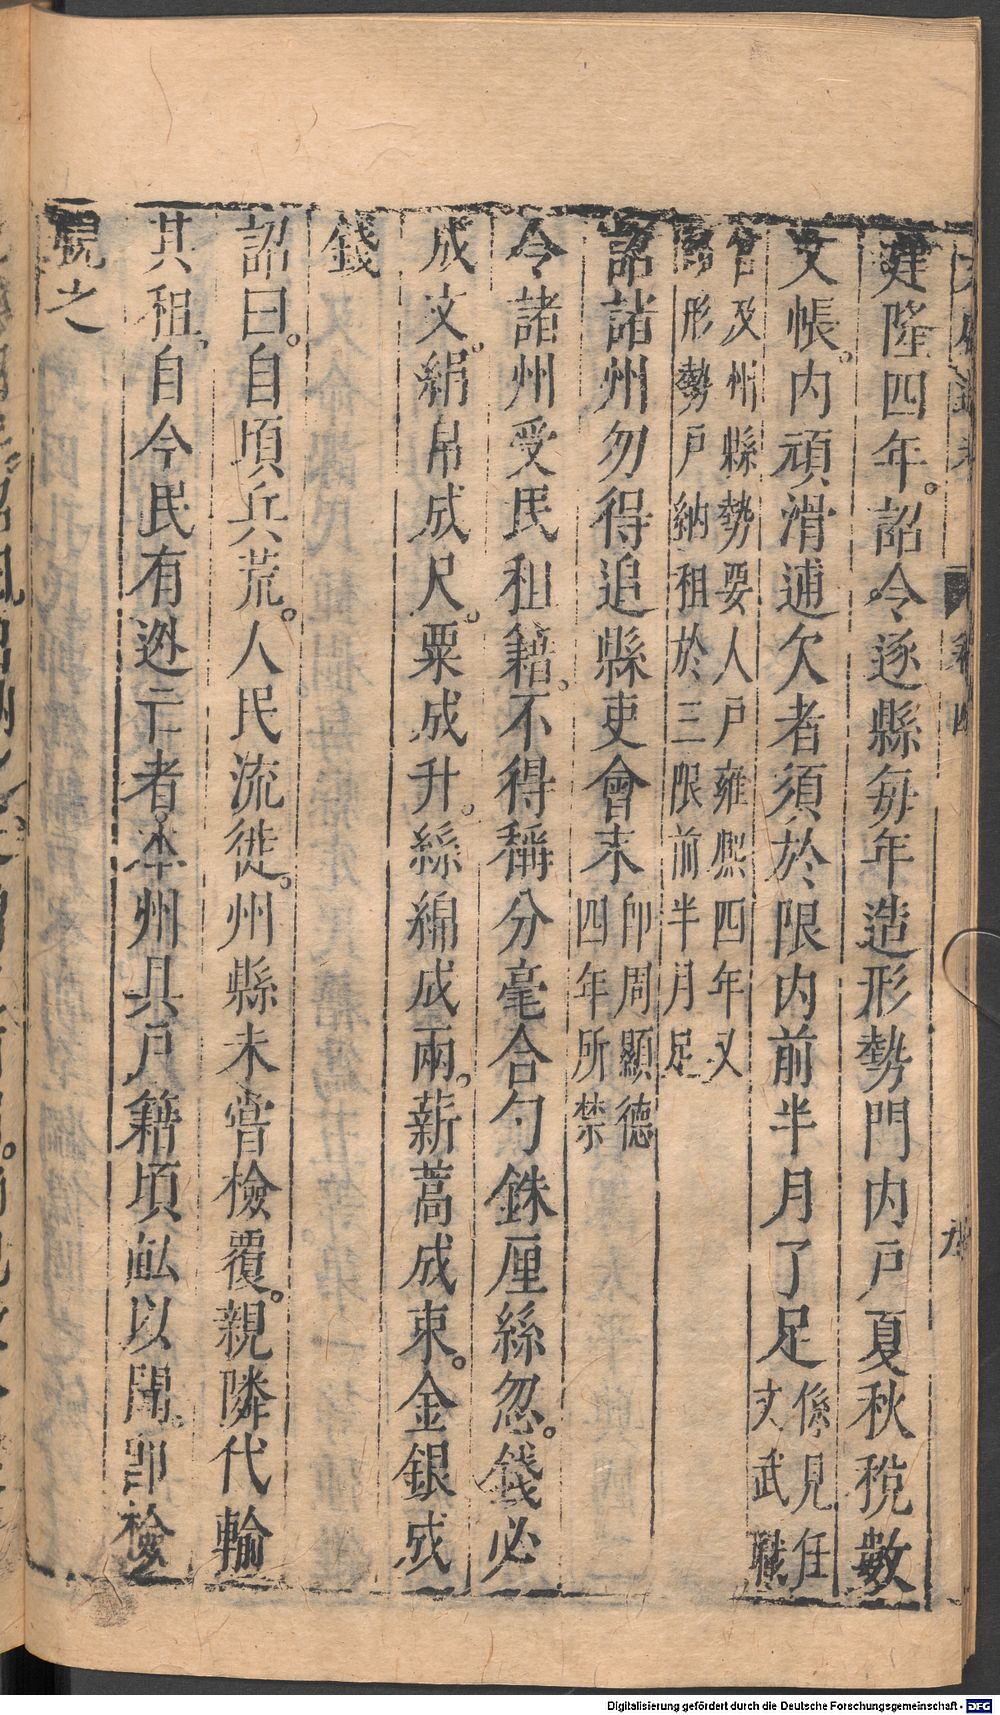 建隆四年。詔令逐縣每年造形勢門内戶夏秋稅數
文帳。内頑滑逋欠者須於限内前半月了足係見任文武職
官及州縣勢要人戶雍熙四年又詔形勢戶納租於三限前半月足
詔諸州勿得追縣吏會末卽周顯德四年所禁
令諸州受民租籍。不得稱分毫合勺銖厘絲忽。錢必
成文。絹帛成尺。粟成升。絲綿成兩。薪蒿成束。金銀成
錢
詔曰。自頃兵荒。人民流徙。州縣未嘗檢覆。親隣代輸
其租。自今民有逃亡者。本州具戶籍頃畝以聞。卽檢
視之
卷四
Digitalisierung gefördert durch die Deutsche Forschungsgemeinschaft - DFG